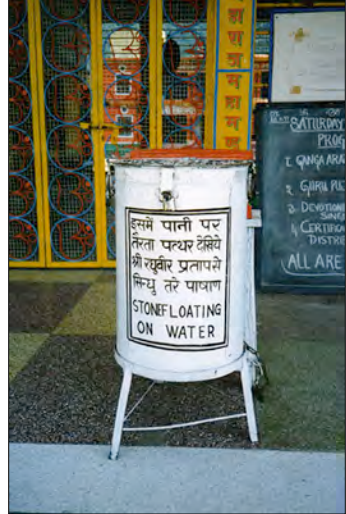 इसमें पानी पर
तैरता पत्थर देखिये
श्री रघुवीर प्रतापसे
सिन्धु तरे पाषाण
STONE FLOATING
ON WATER
SATURDAY
PROG
1. GANGA ARA
2. GURU PU
3. DEVOTION
4. CERTIFIC
DISTRI
ALL ARE